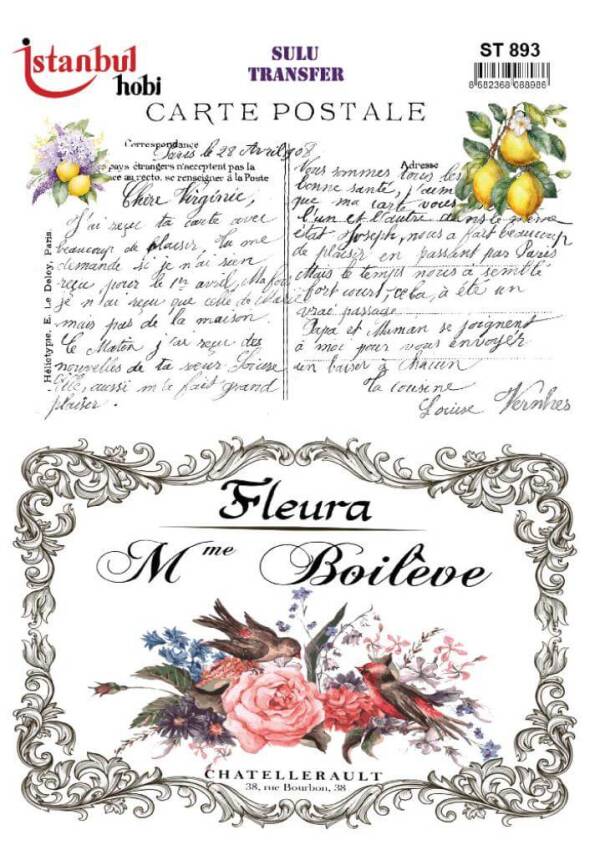 istanbul
hobi
SULU
TRANSFER
ST 893
8 682368 088986
CARTE POSTALE
Correspondance
Paris le 28 Avril 1908
pays étrangers n'acceptent pas la
ce au recto. se renseigner à la Poste
Chère Virginie,
J'ai reçu ta carte avec
beaucoup de plaisir. Tu me
demande si je n'ai rien
reçu pour le 1er avril, Ma foi
je n'ai reçu que celle de Marie
mais pas de la maison.
Ce Matin j'ai reçu des
nouvelles de ta sœur Louise
Elle, aussi m'a fait grand
plaisir.
Héliotype. E. Le Deley, Paris.
Adresse
Nous sommes tous les
bonne santé, j'aime
que ma carte vous
l'un et l'autre dans le même
état Joseph, nous a fait beaucoup
de plaisir en passant par Paris
Mais le temps nous a semblé
fort court, cela, a été un
vrai passage
Papa et Maman se joignent
à moi pour vous envoyer
un baiser à chacun
ta cousine
Louise Vernhes
Fleura
Mme Boilêve
CHATELLERAULT
38, rue Bourbon, 38